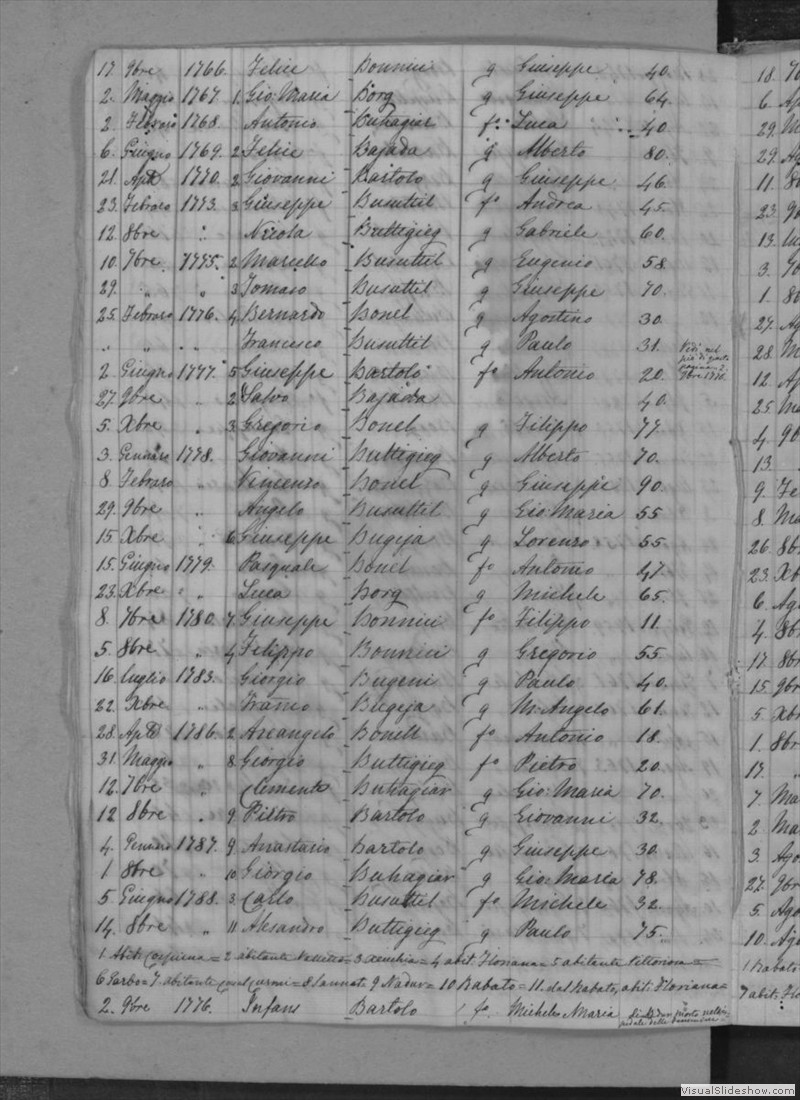 17. 9bre 1766. Felice Bonnici g Giuseppe 40.
2. Maggio 1767. 1. Gio: Maria Borg g Giuseppe 64.
2. Febraro 1768. Antonio Buhagiar fo: Luca 40
6. Giugno 1769. 2 Felice Bajada g Alberto 80.
21. 1770. 2 Giovanni Bartolo g Giuseppe 46.
23. Febraro 1773. 3 Giuseppe Busuttil fo Andrea 45.
12. 8bre " Nicola Buttigieg g Gabriele 60.
10. 7bre 1775. 2 Marcello Busuttil g Eugenio 58.
29. " " 3 Tomaso Busuttil g Giuseppe 70.
25. Febraro 1776. 4 Bernardo Bonel g Agostino 30.
" " " Francesco Busuttil g Paulo 31. Vedi nel
2. Giugno 1777. 5 Giuseppe Bartolo fo Antonio 20.
27. 9bre " 2 Salvo Bajada 40.
5. Xbre " 3 Gregorio Bonel g Filippo 77.
3. Gennaro 1778. Giovanni Buttigieg g Alberto 70.
8. Febraro " Vincenzo Bonel g Giuseppe 90.
29. 9bre " Angelo Busuttil g Gio: Maria 55
15 Xbre " 6 Giuseppe Bugeja g Lorenzo 55
15. Giugno 1779. Pasquale Bonel fo Antonio 47.
23. Xbre " Luca Borg g Michele 65.
8. 7bre 1780. 7. Giuseppe Bonnici fo Filippo 11.
5. 8bre " 4 Filippo Bonnici g Gregorio 55.
16. Luglio 1783. Giorgio Bugeni g Paulo 40.
22. Xbre " Franco Bugeja g M: Angelo 61.
28. 1786. 2 Arcangelo Bonell fo Antonio 18.
31. Maggio " 8 Giorgio Buttigieg fo Pietro 20.
12. 7bre " Clemente Buhagiar g Gio: Maria 70.
12 8bre " 9. Pietro Bartolo g Giovanni 32.
4. Gennaro 1787. 9 Anastasio Bartolo g Giuseppe 30.
1. 8bre " 10 Giorgio Buhagiar g Gio: Maria 78.
5. Giugno 1788. 3 Carlo Busuttil fo Michele 32.
14. 8bre " 11 Alesandro Buttigieg g Paulo 75.
1 Abit: Cospicua = 2 abitante = 3 = 4 abit: Floriana = 5 abitante Vittoriosa =
6 Garbo = 7 abitante = 8 Sannat = 9 Nadur = 10 Rabato = 11. dal Rabato, abit: Floriana =
2. 9bre 1776. Infans Bartolo fo. Michele Maria
18.
6. Ap
29. M
29. Ag
11. 8
23. 9b
13.
3. 7b
1. 8
27. Ag
28. M
12. A
25. Ma
4. 90
13. "
9. Fe
8. Ma
26. 8b
23. Xb
6. Ag
4. 8b
17. 8b
15. 9b
5. Xb
1. 8br
17. "
7. Ma
2. Ma
3. Ago
27. 9br
5. Ago
10. Ag
1 Rabato
7 abit: Flo
VisualSlideshow.com